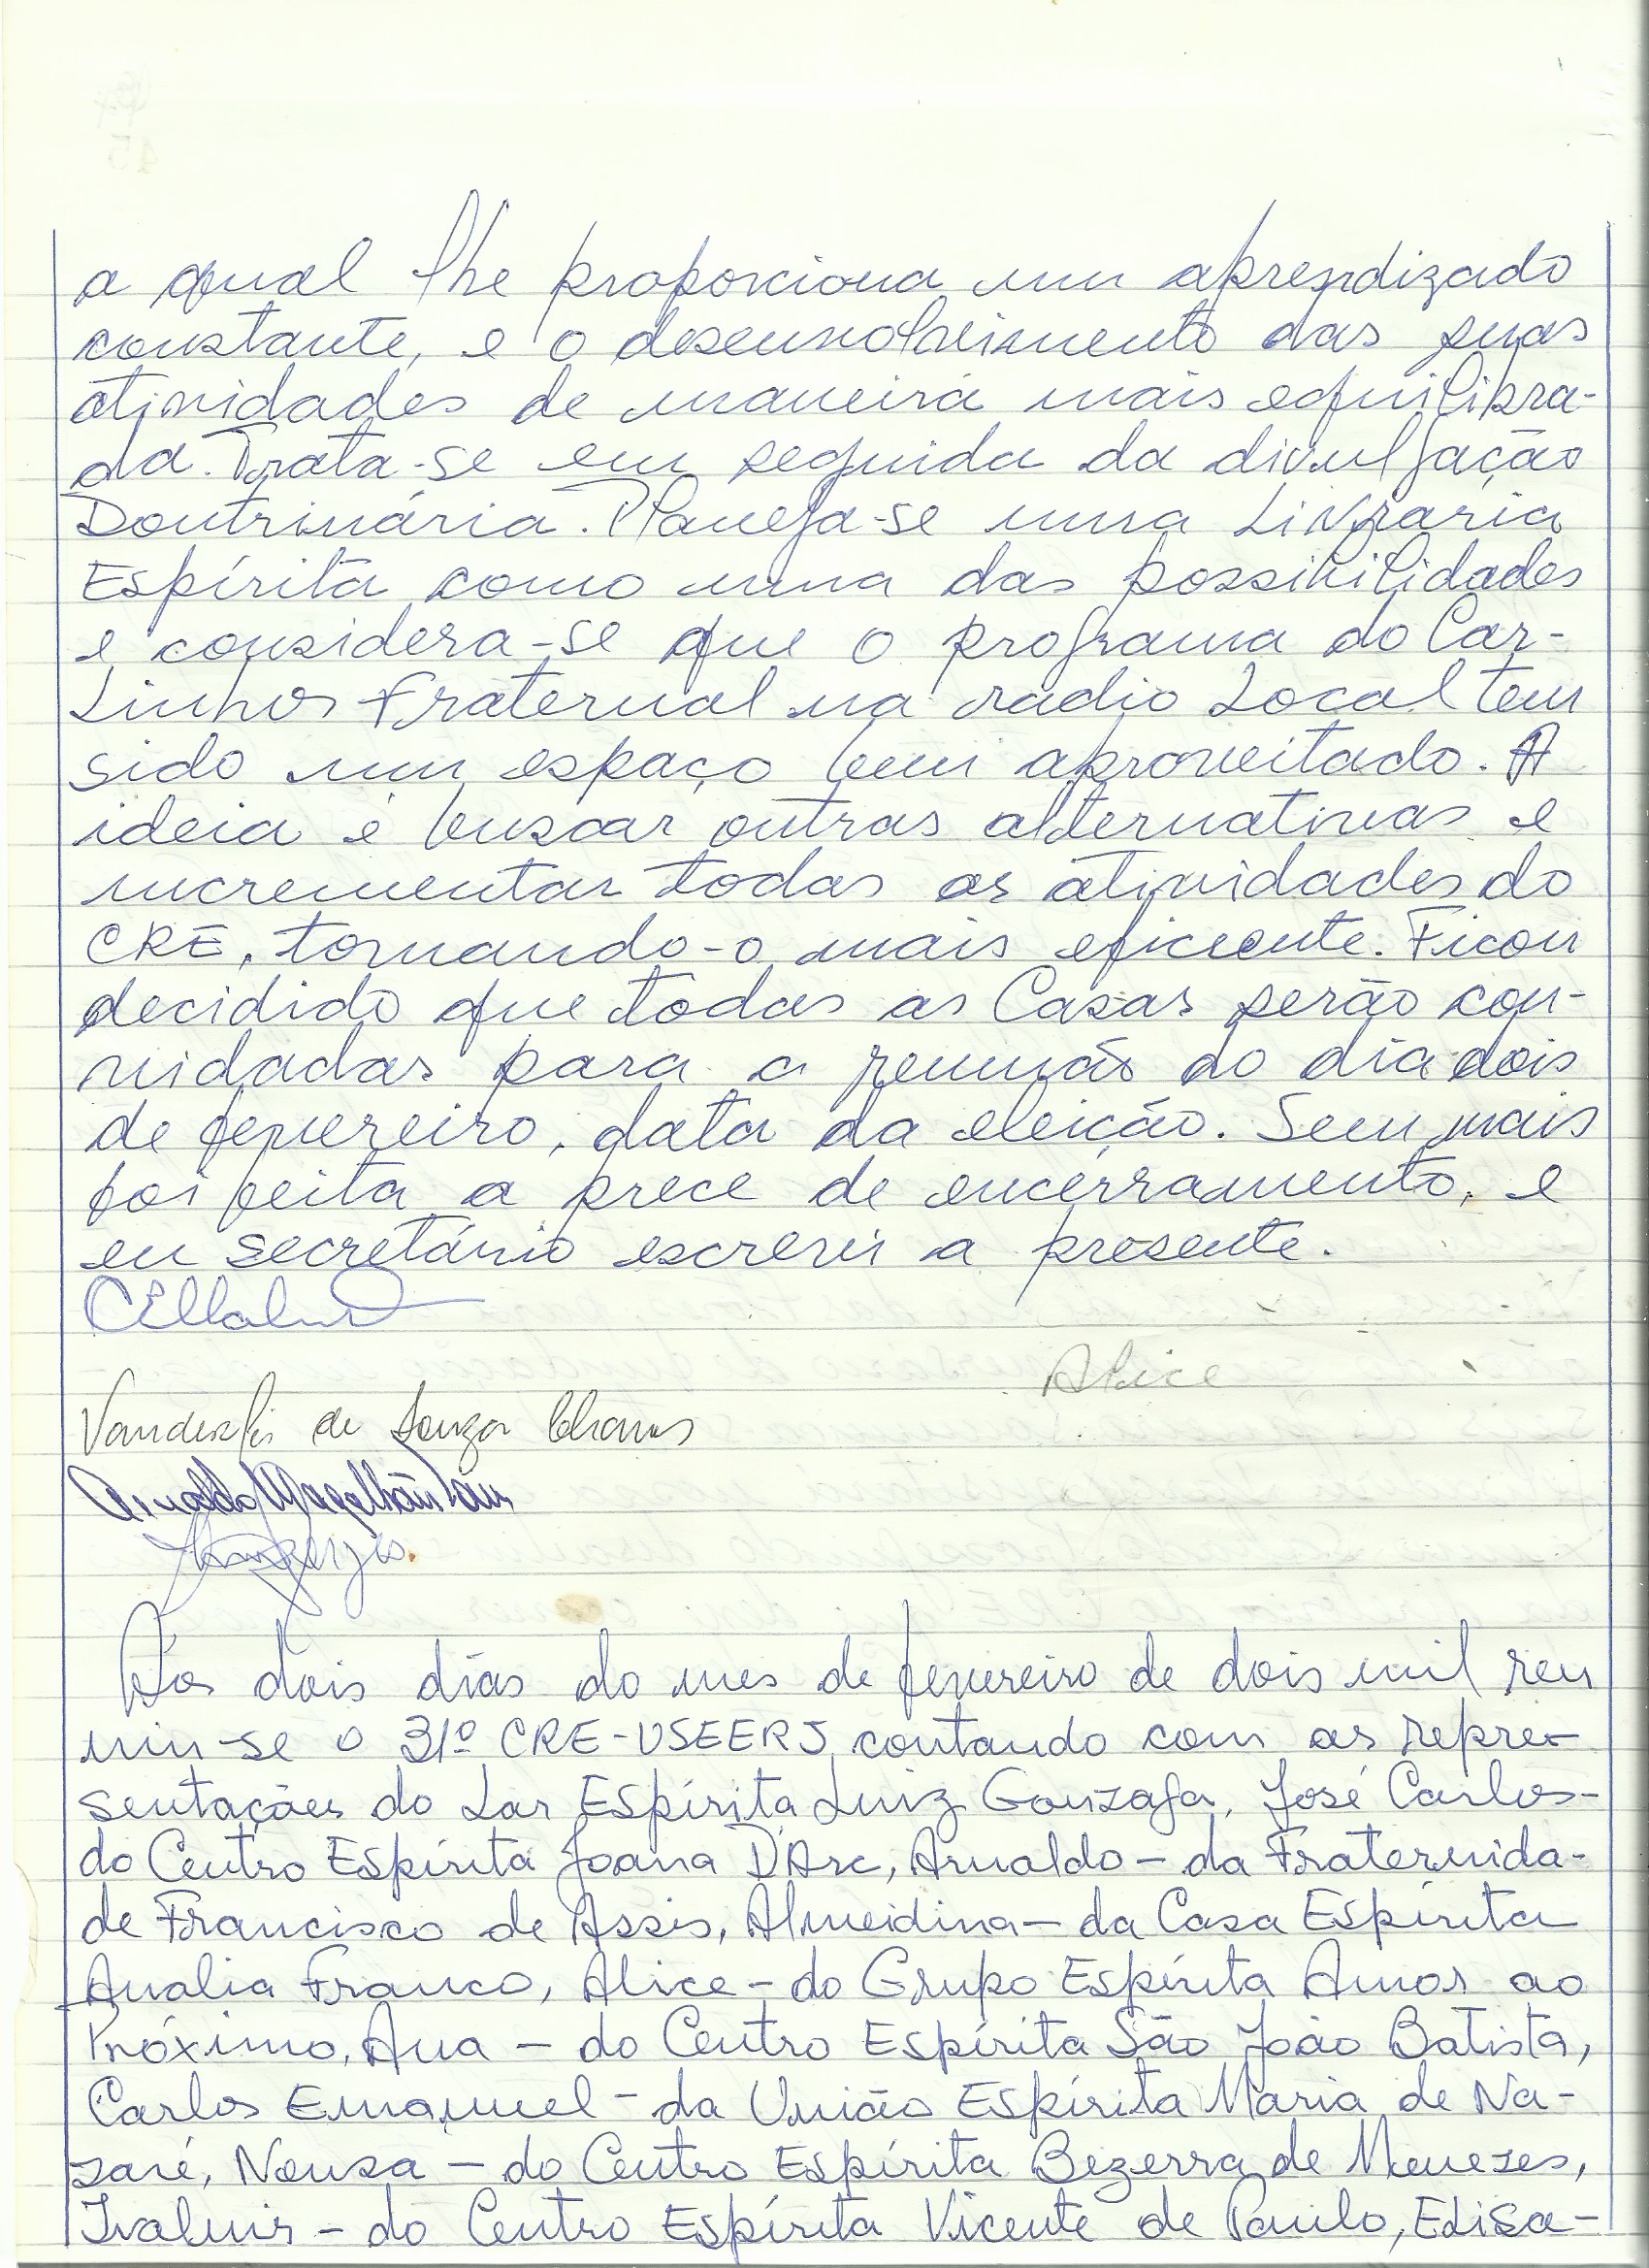 a qual lhe proporciona um aprendizado
constante, e o desenvolvimento das suas
atividades de maneira mais equilibra-
da. Trata-se em seguida da divulgação
Doutrinária. Planeja-se uma Livraria
Espírita como uma das possibilidades
e considera-se que o programa do Car-
linhos Fraternal na radio Local tem
sido um espaço bem aproveitado. A
ideia é buscar outras alternativas e
incrementar todas as atividades do
CRE, tornando-o mais eficiente. Ficou
decidido que todas as Casas serão con-
vidadas para a reunião do dia dois
de fevereiro, data da eleição. Sem mais
foi feita a prece de encerramento, e
eu secretário escrevi a presente.
Alice
Vanderlei de Souza Chaves
Arnaldo Magalhães
Aos dois dias do mes de fevereiro de dois mil reu
niu-se o 31º CRE-USEERJ, contando com as repre-
sentações do Lar Espírita Luiz Gonzaga, José Carlos-
do Centro Espírita Joana D'Arc, Arnaldo - da Fraternida-
de Francisco de Assis, Almeidina - da Casa Espírita
Analia Franco, Alice - do Grupo Espírita Amor ao
Próximo, Ana - do Centro Espírita São João Batista,
Carlos Emanuel - da União Espírita Maria de Na-
zaré, Neusa - do Centro Espírita Bezerra de Menezes,
Ivalmir - do Centro Espírita Vicente de Paulo, Elisa-